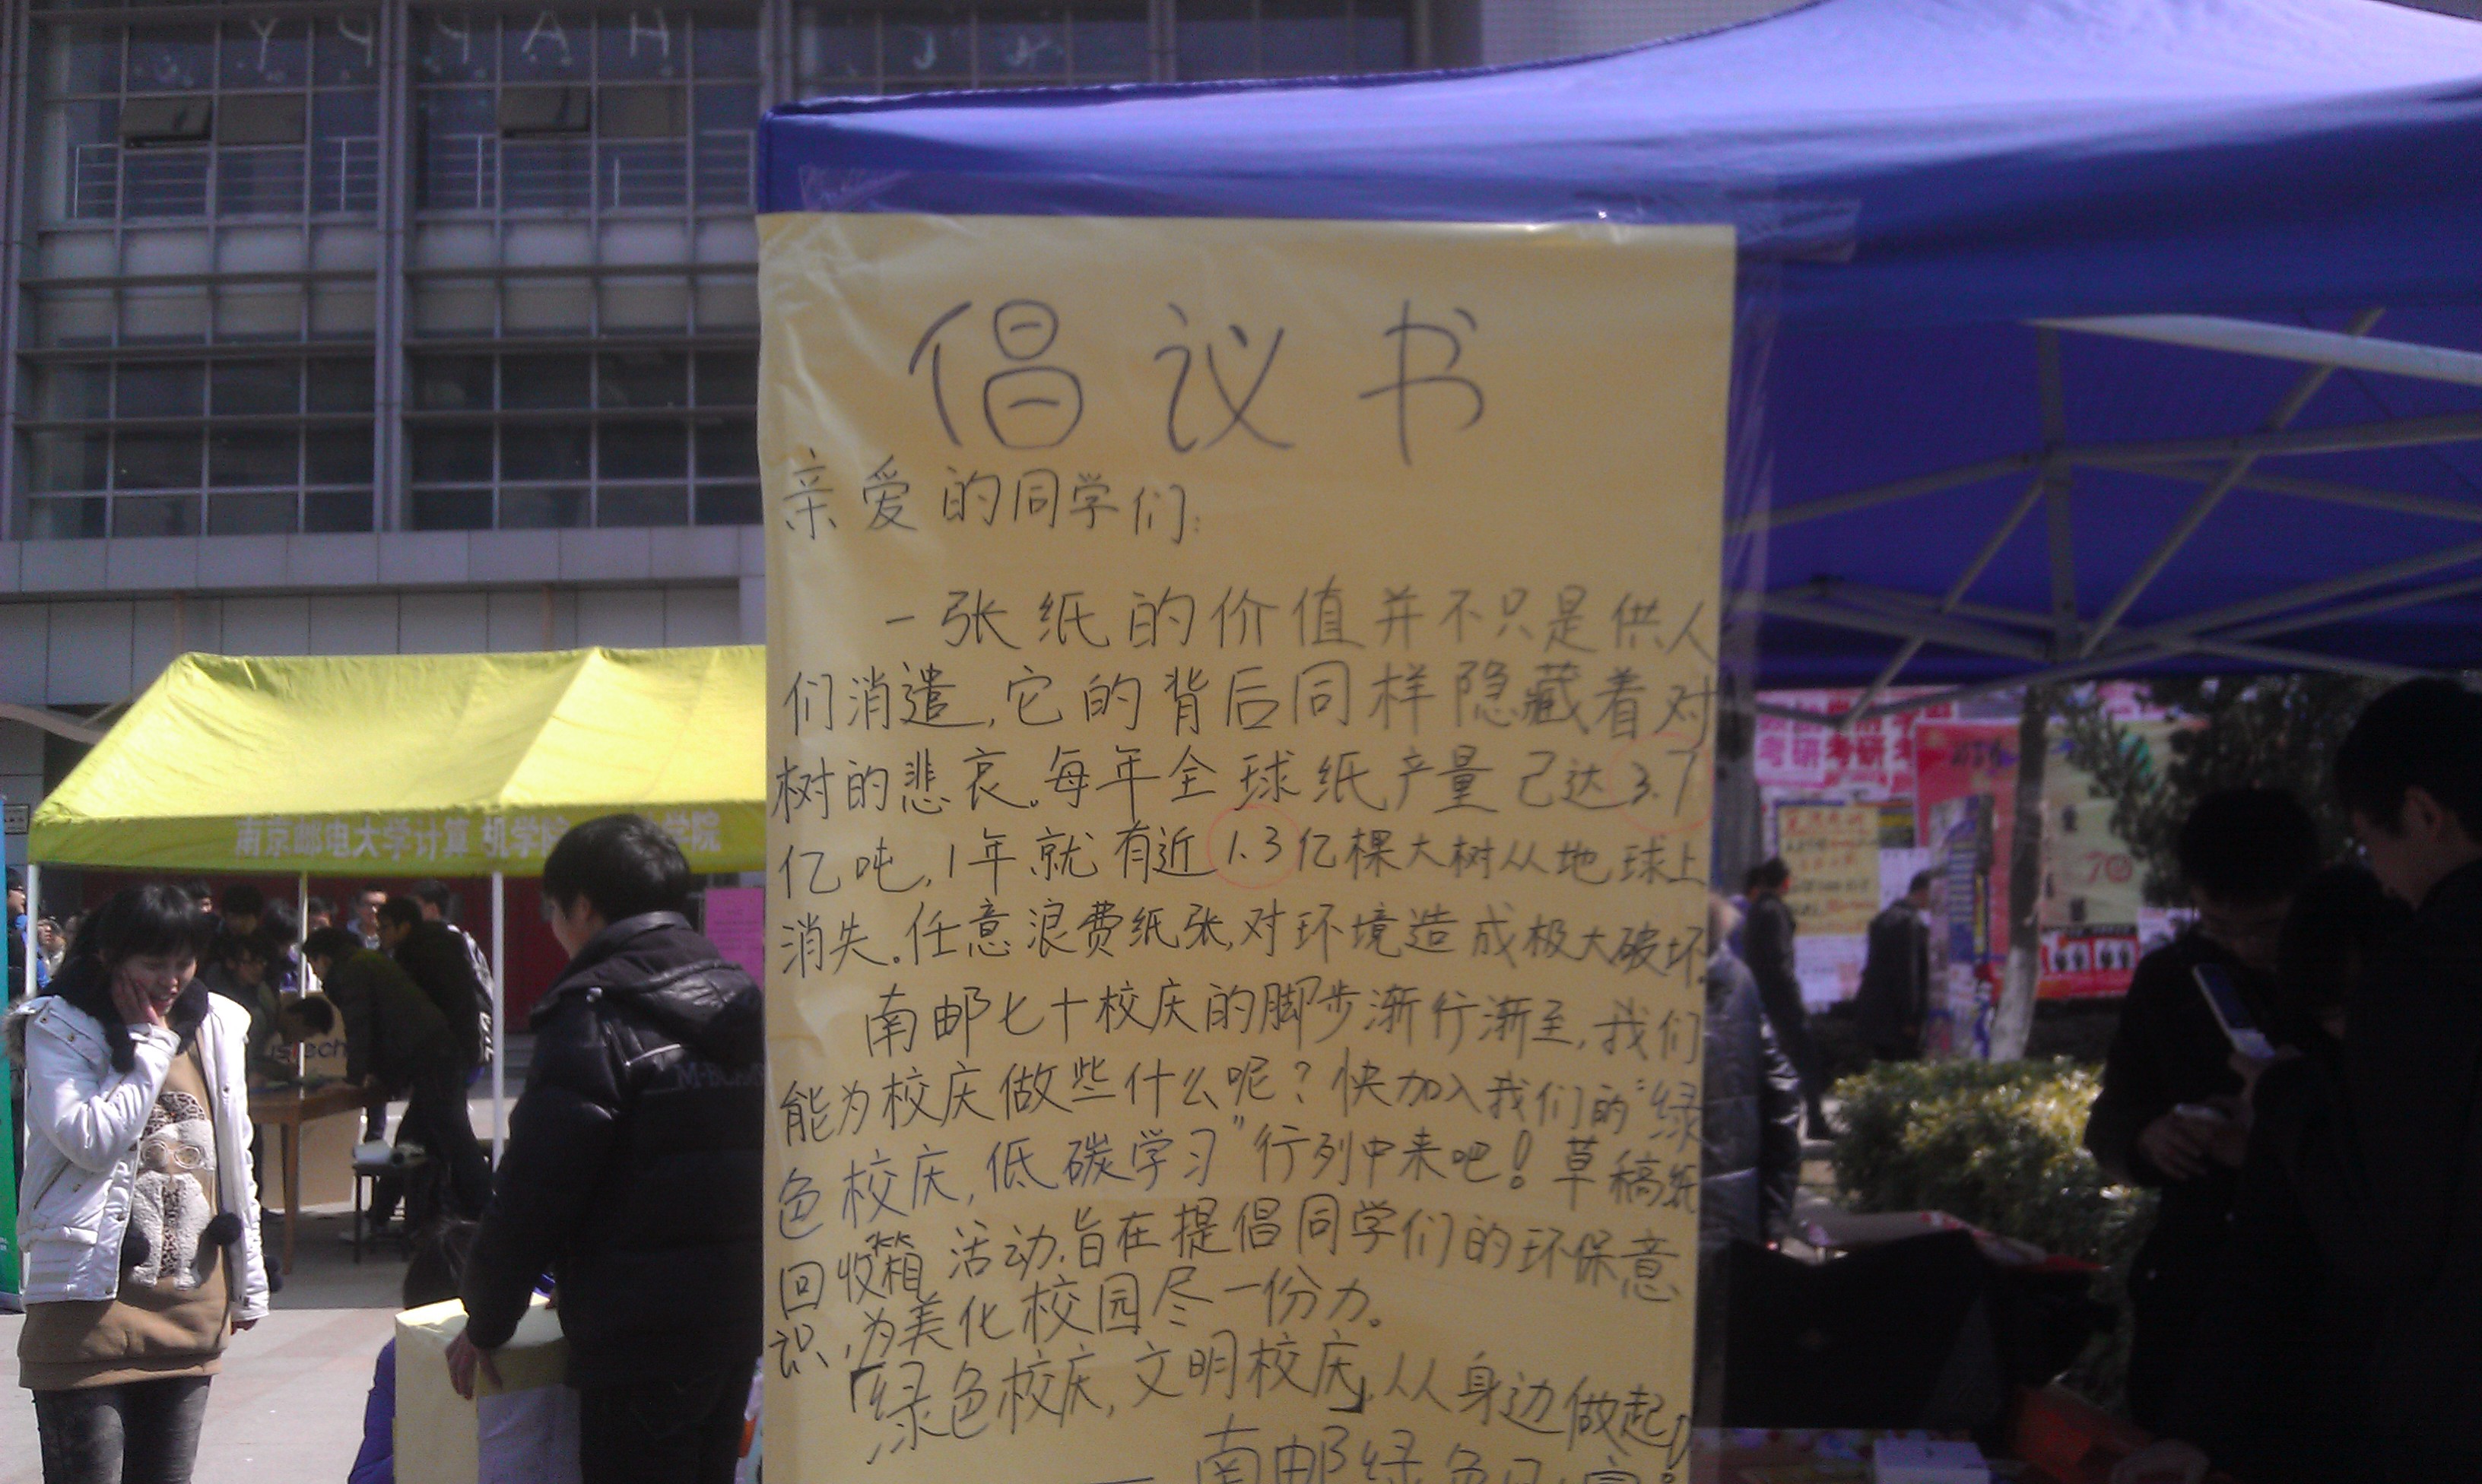 倡议书
亲爱的同学们:
一张纸的价值并不只是供人
们消遣,它的背后同样隐藏着对
树的悲哀。每年全球纸产量己达3.7
亿吨,1年就有近1.3亿棵大树从地球上
消失。任意浪费纸张,对环境造成极大破坏。
南邮七十校庆的脚步渐行渐至,我们
能为校庆做些什么呢?快加入我们的“绿
色校庆,低碳学习”行列中来吧!草稿纸
回收箱活动,旨在提倡同学们的环保意
识,为美化校园尽一份力。
「绿色校庆,文明校庆」,从身边做起。
——南邮绿色
南京邮电大学计算机学院
学院
考研考研
70
YYYAH